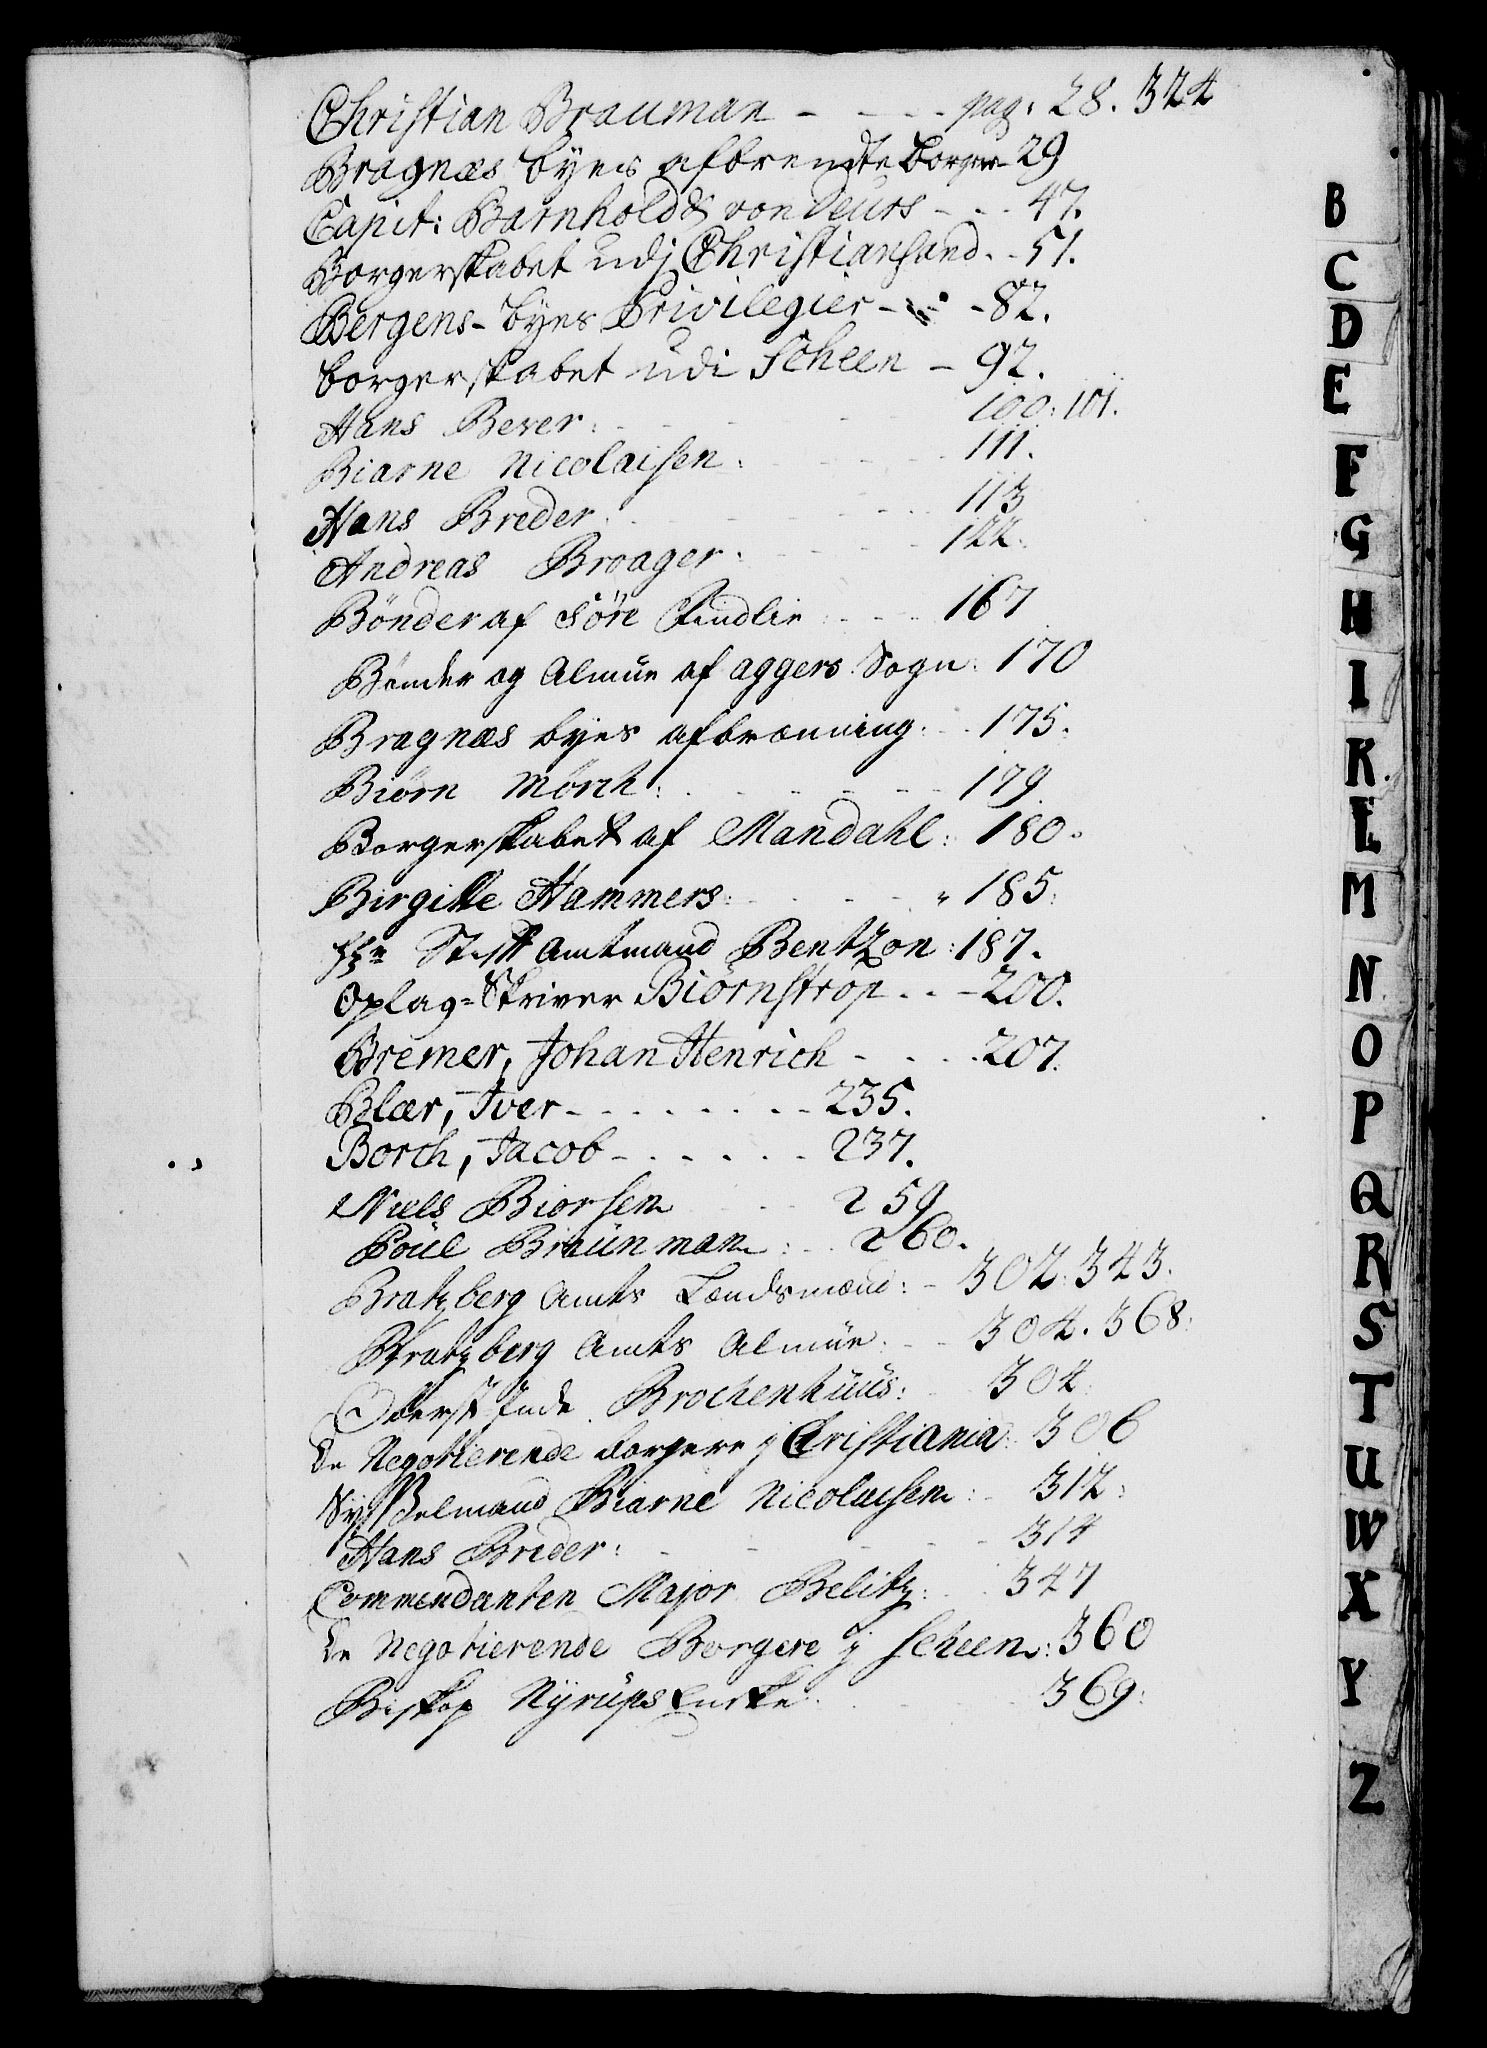 Christian Brauman - - - - pag: 28. 324
Bragnæs byes afbrendte borger - 29
Capit: Barnholdt von Deurs - - - 47.
Borgerskabet udj Christiansand. - 51.
Bergens-byes Privilegier - - - 82.
borgerskabet udi Scheen - 92.
Hans Bever: - - - 100: 101.
Biarne Nicolaisen: - - - 111.
Hans Breder. - - - 113
Andreas Broager: - - - 122.
Bönder af Söre : - - - 167
Bönder og Almue af aggers Sogn: 170
Bragnæs byes afbrænning: - - 175.
Biörn Mörch: - - - 179.
Borgerskabet af Mandahl: 180.
Birgitte Hammers: - - - 185.
Hr. Stift Amtmand Bentzon: 187.
Oplag=Skriver Biörnstrop - - - 200.
Bremer, Johan Henrich - - - 207.
Blær, Iver - - - - - - - 235.
Borch, Jacob - - - - - - 237.
Niels Biorsen - - 259
Poül Braünman: - - 260.
Bratzberg Amts Lændsmænd: - 302: 343.
Bratzberg Amts Almüe: - - 304. 368:
Oberst Brochenhüüs: - 304.
De Negotierende borgere j Christiania: 306
Sysselmand Biarne Nicolaisen: - 312:
Hans Breder: - - - 314
Commendanten Major Belitz: - - 347
De Negotierende Borgere j Scheen: 360
Biskop Nyrüps Encke: - - - 369:
B
C
D
E
F
G
H
I
K
L
M
N
O
P
Q
R
S
T
U
W
X
Y
Z